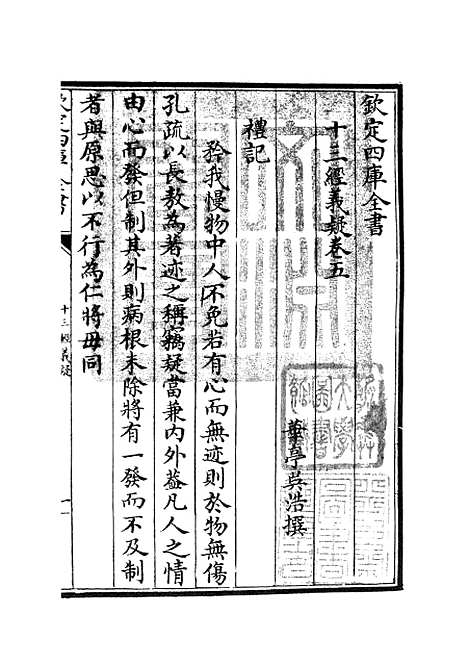 欽定四庫全書
十三經義疑卷五
華亭吳浩撰
禮記
矜我慢物中人不免若有心而無迹則於物無傷
孔疏以長敖為著迹之稱竊疑當兼內外葢凡人之情
由心而發但制其外則病根未除將有一發而不及制
者與原思以不行為仁將毋同
欽定四庫全書
十三經義疑
一